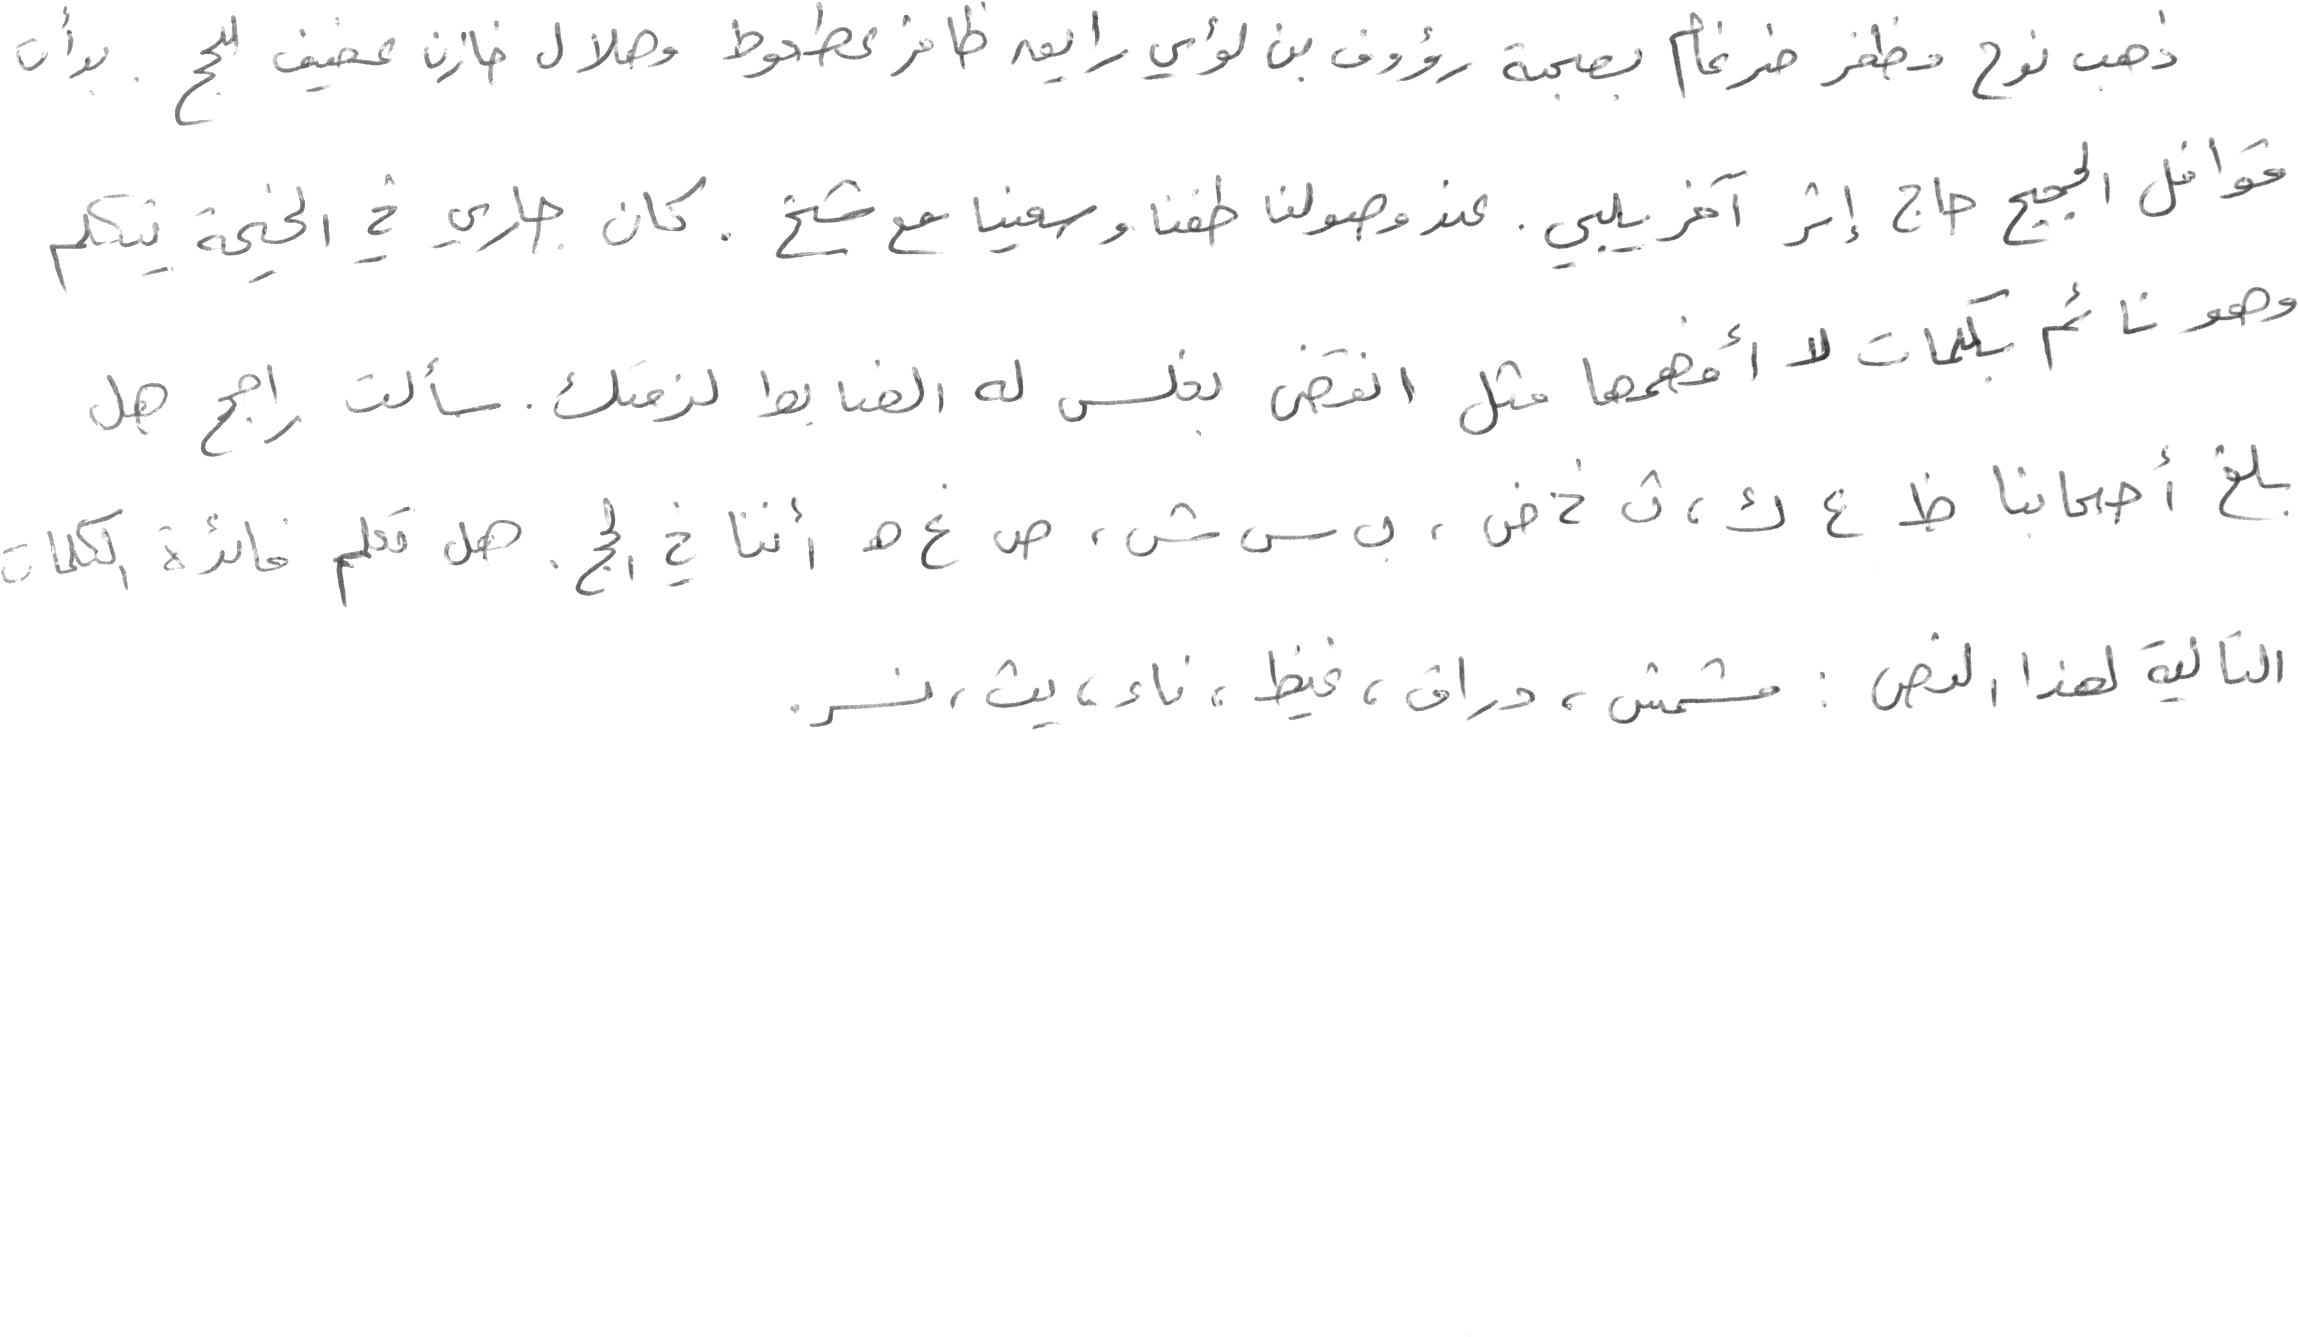 ذهب نوح مظفر ضرغام بصحبة رؤوف بن لؤي رايعه ظافر عطعوط وهلال خازن عفيف للحج . بدأت
قوافل الحجيج حاج إثر آخر يلبي . عند وصولنا طفنا وسعينا مع شيخ . كان جاري في الخيمة يتكلم
وهو نائم بكلمات لا أفهمها مثل انقض بغلس له الضابط لزمتك . سألت راجح هل
بلغ أصحابنا ظ ع ك ، ث خ ض ، ب س ش ، ص غ ه أننا في الحج . هل تعلم فائدة الكلمات
التالية لهذا النص : مشمش ، دراق ، غيظ ، ناء ، يث ، نسر .